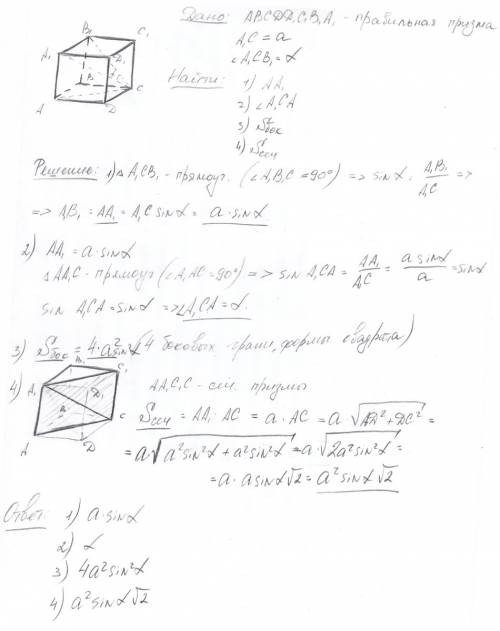 Дано: ABCDD₁C₁B₁A₁ - правильная призма
A₁C = a
∠A₁CB₁ = α
Найти: 1) AA₁
2) ∠A₁CA
3) Sбок
4) Sсеч
B₁ C₁
A₁ D₁
B C
A D
Решение: 1) △ A₁CB₁ - прямоуг. (∠A₁B₁C = 90°) => sin α = A₁B₁/A₁C =>
=> A₁B₁ = AA₁ = A₁C sin α = a·sin α
2) AA₁ = a·sin α
△AA₁C - прямоуг (∠A₁AC = 90°) => sin A₁CA = AA₁/A₁C = a sin α/a = sin α
sin A₁CA = sin α => ∠A₁CA = α.
3) Sбок = 4·a²sin²α (4 боковых грани, формы квадрата)
4) B₁ C₁
A₁ D₁
B C
A D
AA₁C₁C - сеч. призмы
Sсеч = AA₁·AC = a·AC = a·√AD²+DC² =
= a√a²sin²α + a²sin²α = a√2a²sin²α =
= a·a sin α√2 = a² sin α√2
Ответ: 1) a·sin α
2) α
3) 4a²sin²α
4) a²sin α√2